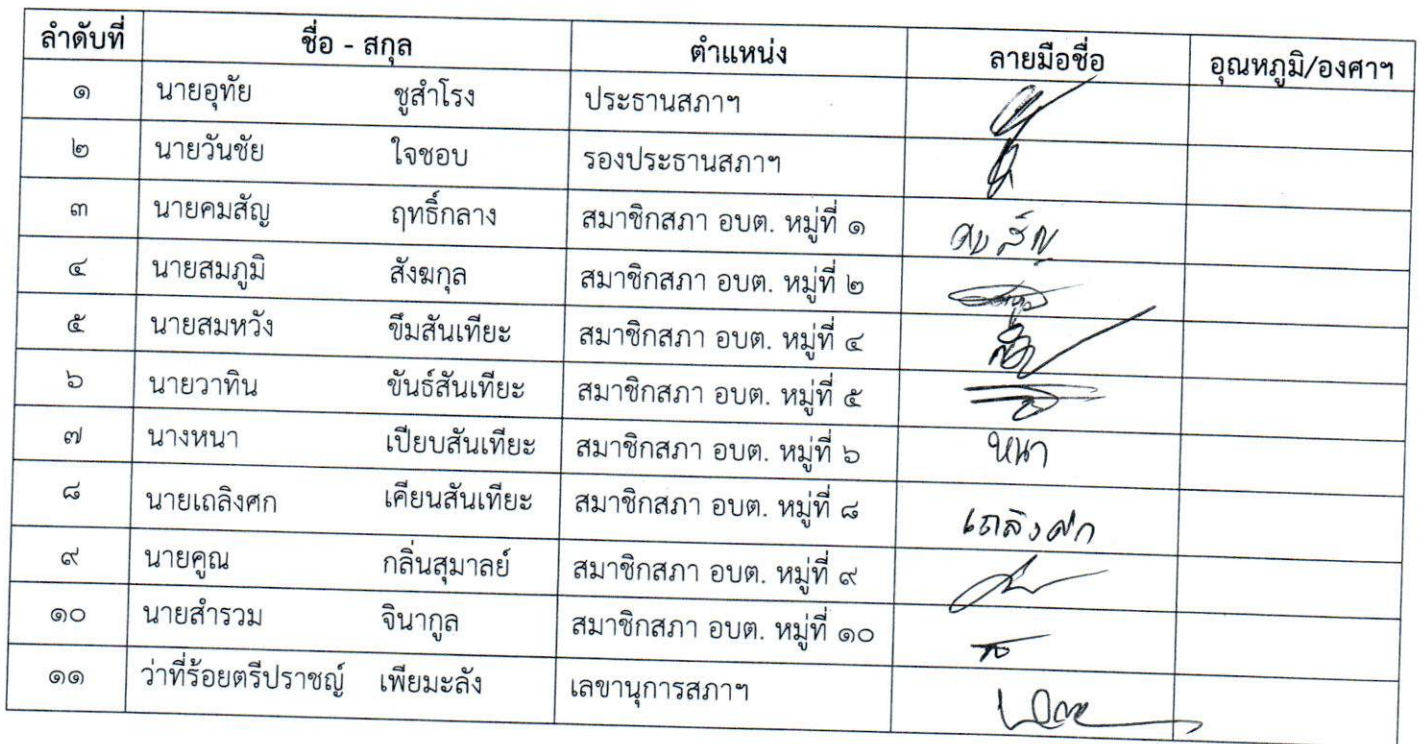 ลำดับที่ ชื่อ - สกุล ตำแหน่ง ลายมือชื่อ อุณหภูมิ/องศาฯ
๑ นายอุทัย ชูสำโรง ประธานสภาฯ
๒ นายวันชัย ใจชอบ รองประธานสภาฯ
๓ นายคมสัญ ฤทธิ์กลาง สมาชิกสภา อบต. หมู่ที่ ๑ คมสัญ
๔ นายสมภูมิ สังฆกุล สมาชิกสภา อบต. หมู่ที่ ๒
๕ นายสมหวัง ขึมสันเทียะ สมาชิกสภา อบต. หมู่ที่ ๔
๖ นายวาทิน ขันธ์สันเทียะ สมาชิกสภา อบต. หมู่ที่ ๕
๗ นางหนา เปียบสันเทียะ สมาชิกสภา อบต. หมู่ที่ ๖ หนา
๘ นายเถลิงศก เคียนสันเทียะ สมาชิกสภา อบต. หมู่ที่ ๘ เถลิงศก
๙ นายคูณ กลิ่นสุมาลย์ สมาชิกสภา อบต. หมู่ที่ ๙
๑๐ นายสำรวม จินากูล สมาชิกสภา อบต. หมู่ที่ ๑๐
๑๑ ว่าที่ร้อยตรีปราชญ์ เพียมะลัง เลขานุการสภาฯ